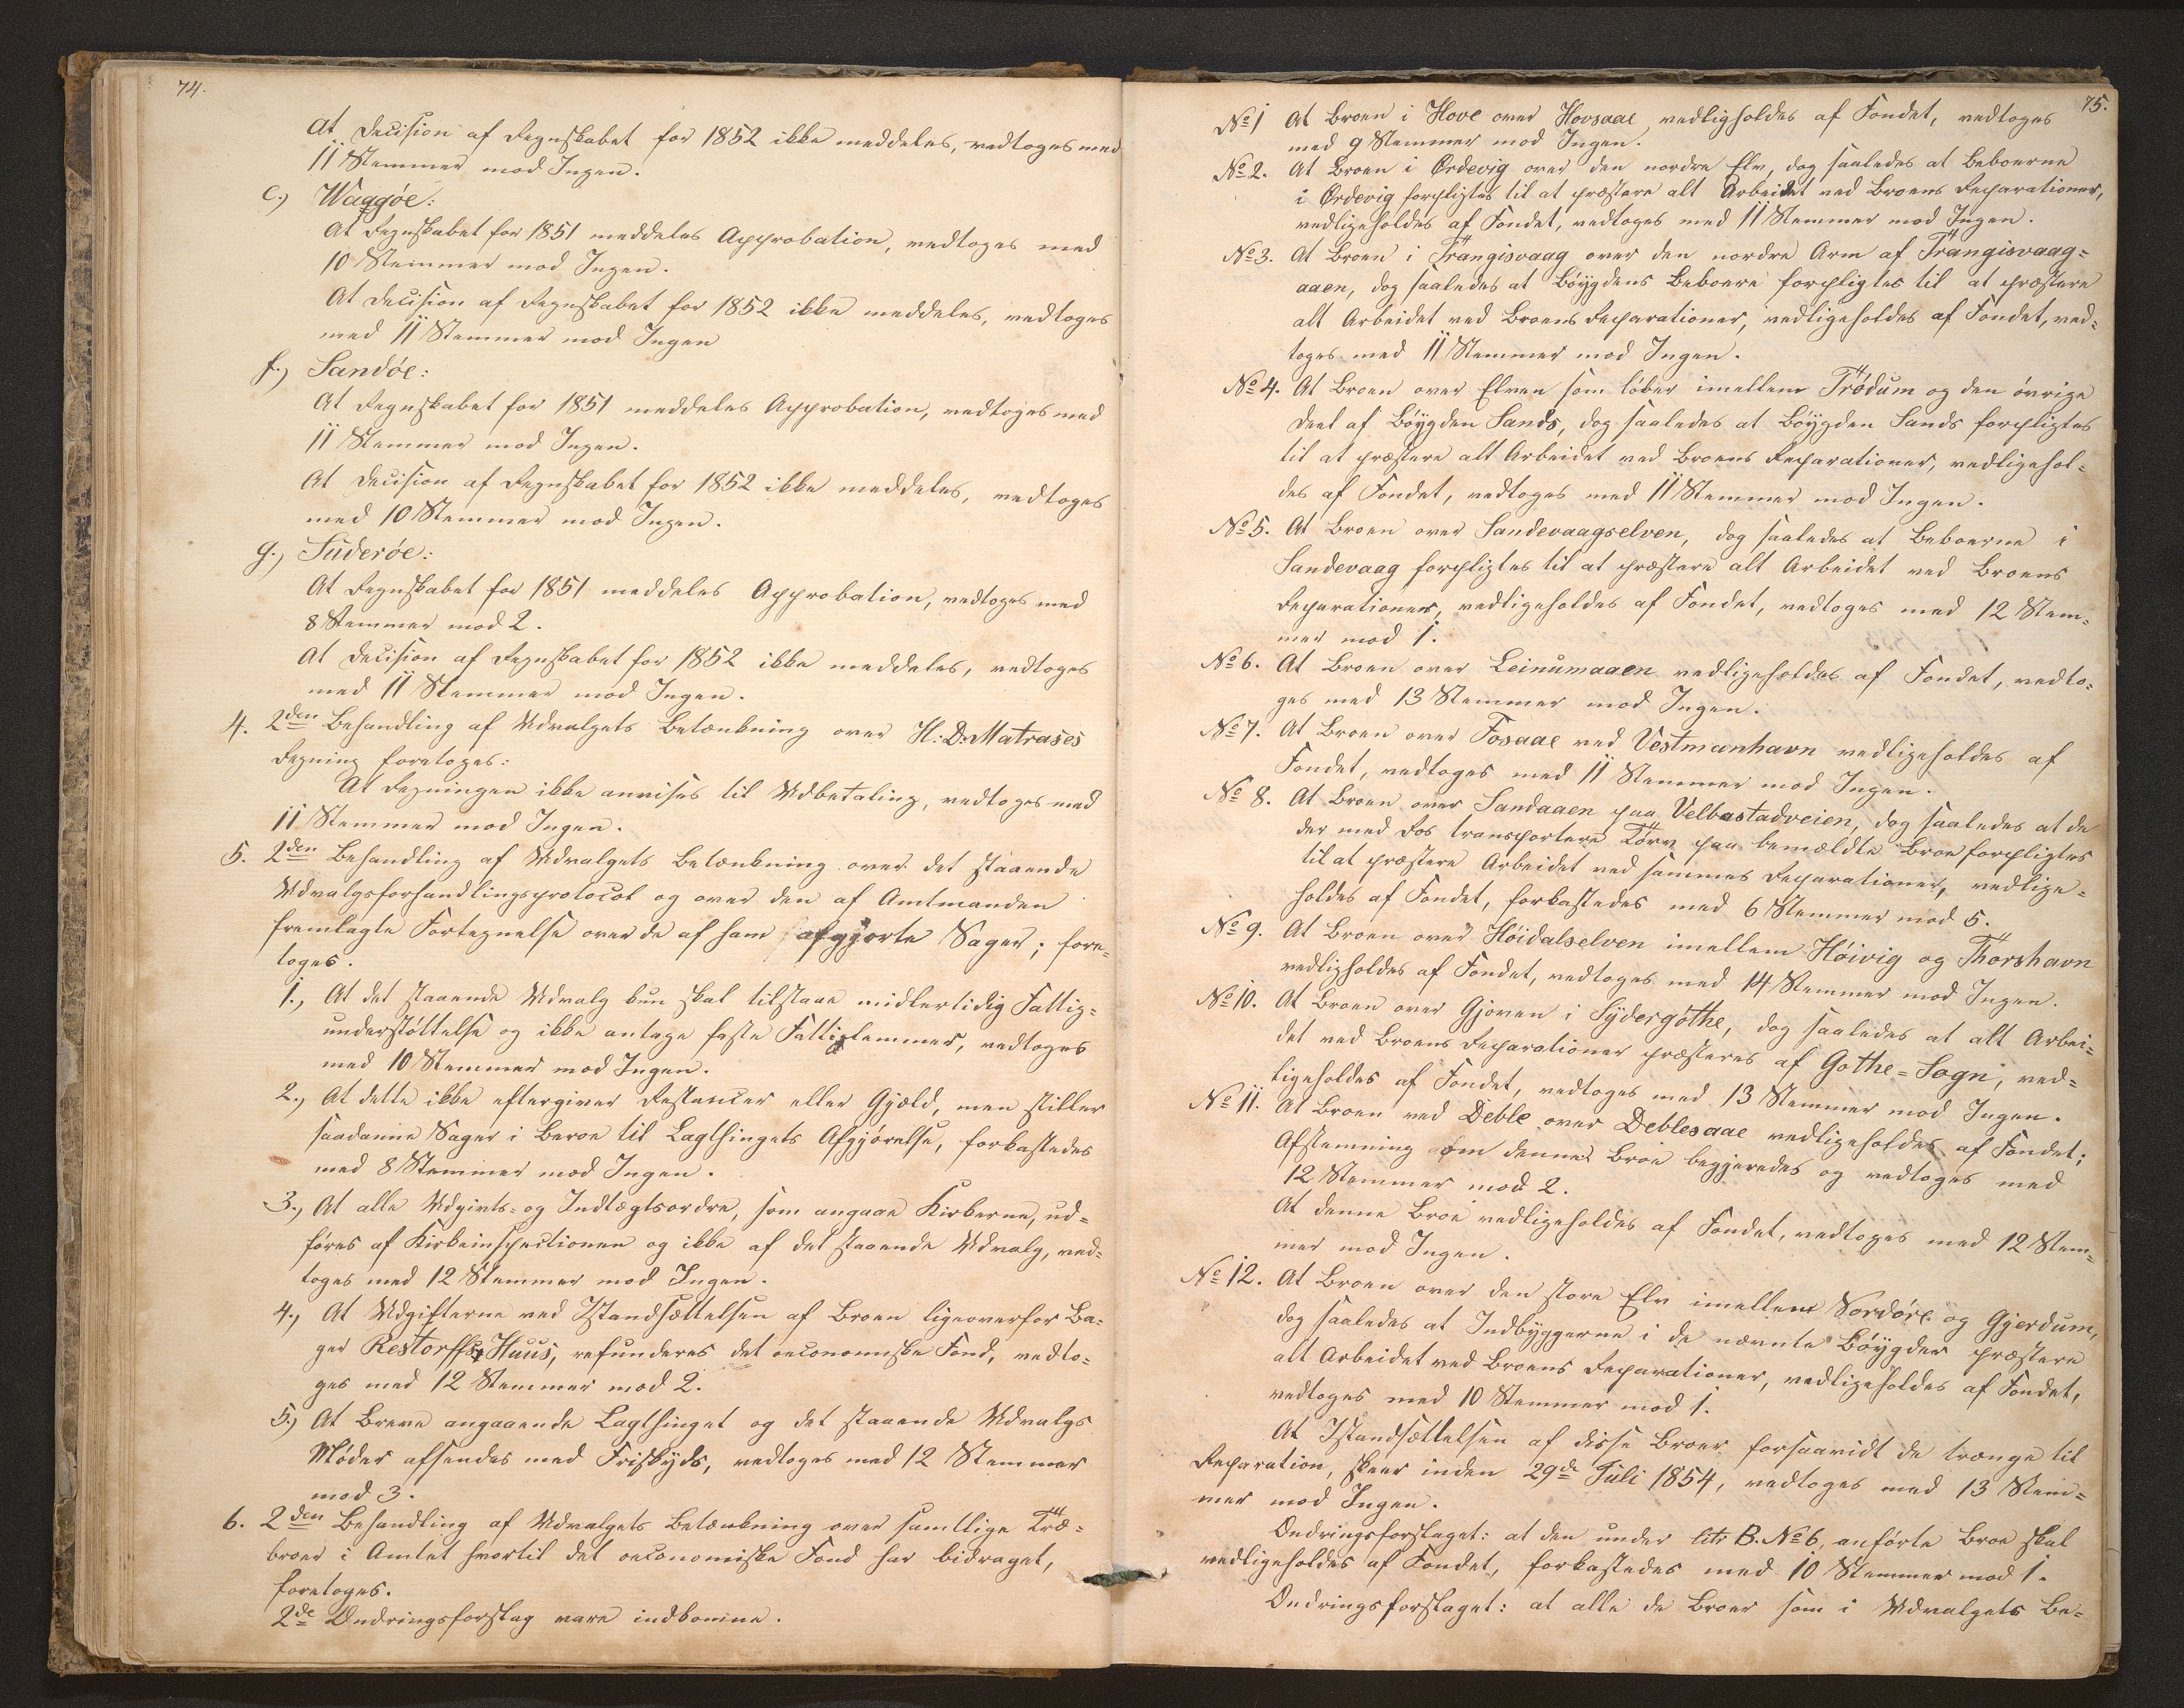 74.
At Decision af Regnskabet for 1852 ikke meddeles, vedtoges med
11 Stemmer mod Ingen.
e.) Waagøe:
At Regnskabet for 1851 meddeles Approbation, vedtoges med
10 Stemmer mod Ingen.
At Decision af Regnskabet for 1852 ikke meddeles, vedtoges
med 11 Stemmer mod Ingen
f.) Sandøe:
At Regnskabet for 1851 meddeles Approbation, vedtoges med
11 Stemmer mod Ingen.
At Decision af Regnskabet for 1852 ikke meddeles, vedtoges
med 10 Stemmer mod Ingen.
g.) Suderøe:
At Regnskabet for 1851 meddeles Approbation, vedtoges med
8 Stemmer mod 2.
At Decision af Regnskabet for 1852 ikke meddeles, vedtoges
med 11 Stemmer mod Ingen.
4. 2den Behandling af Udvalgets Betænkning over H: D: Matrases
Regning foretoges:
At Regningen ikke anvises til Udbetaling, vedtoges med
11 Stemmer mod Ingen.
5. 2den Behandling af Udvalgets Betænkning over det staaende
Udvalgsforhandlingsprotocol og over den af Amtmanden
fremlagte Fortegnelse over de af ham afgjorte Sager; fore=
toges.
1., At det staaende Udvalg kun skal tilstaae midlertidig Fattig=
understøttelse og ikke antage faste Fattiglemmer, vedtoges
med 10 Stemmer mod Ingen.
2., At dette ikke eftergiver Restancer eller Gjæld, men stiller
saadanne Sager i Beroe til Lagthingets Afgjørelse, forkastedes
med 8 Stemmer mod Ingen.
3., At alle Udgivts- og Indtægtsordre, som angaae Kirkerne, ud=
føres af Kirkeinspectionen og ikke af det staaende Udvalg, ved=
toges med 12 Stemmer mod Ingen.
4., At Udgifterne ved Istandsættelsen af Broen ligeoverfor Ba=
ger Restorffs Huus, refunderes det oeconomiske Fond, vedto=
ges med 12 Stemmer mod 2.
5.) At Breve angaaende Lagthinget og det staaende Udvalgs
Møder afsendes med Friskyds, vedtoges med 12 Stemmer
mod 3.
6. 2den Behandling af Udvalgets Betænkning over samtlige Træ=
broer i Amtet hvortil det oeconomiske Fond har bidraget,
foretoges.
2de Ændringsforslag vare indkomne.
75.
No 1 At Broen i Hove over Hovsaae vedligholdes af Fondet, vedtoges
med 9 Stemmer mod Ingen.
No 2. At Broen i Ørdevig over den nordre Elv, dog saaledes at Beboerne
i Ørdevig forpligtes til at præstere alt Arbeidet ved Broens Reparationer,
vedligeholdes af Fondet, vedtoges med 11 Stemmer mod Ingen.
No 3. At Broen i Trangisvaag over den nordre Arm af Trangisvaag=
aaen, dog saaledes at Bøygdens Beboere forpligtes til at præstere
alt Arbeidet ved Broens Reparationer, vedligeholdes af Fondet, ved=
toges med 11 Stemmer mod Ingen.
No 4. At Broen over Elven som løber imellem Trødum og den øvrige
Deel af Bøygden Sands, dog saaledes at Bøygden Sands forpligtes
til at præstere alt Arbeidet ved Broens Reparationer, vedligehol=
des af Fondet, vedtoges med 11 Stemmer mod Ingen.
No 5. At Broen over Sandevaagselven, dog saaledes at Beboerne i
Sandevaag forpligtes til at præstere alt Arbeidet ved Broens
Reparationer, vedligeholdes af Fondet, vedtoges med 12 Stem=
mer mod 1.
No 6. At Broen over Leinumaaen vedligeholdes af Fondet, vedto=
ges med 13 Stemmer mod Ingen.
No 7. At Broen over Fosaae ved Vestmanhavn vedligeholdes af
Fondet, vedtoges med 11 Stemmer mod Ingen.
No 8. At Broen over Sandaaen paa Velbastadveien, dog saaledes at de
der med Hos transportere Tørv paa bemældte Broe forpligtes
til at præstere Arbeidet ved sammes Reparationer, vedlige=
holdes af Fondet, forkastedes med 6 Stemmer mod 5.
No 9. At Broen over Høidalselven imellem Høivig og Thorshavn
vedligholdes af Fondet, vedtoges med 14 Stemmer mod Ingen.
No 10. At Broen over Gjoven i Sydergøthe, dog saaledes at alt Arbei=
det ved Broens Reparationer præsteres af Gøthe=Sogn, ved=
ligeholdes af Fondet, vedtoges med 13 Stemmer mod Ingen.
No 11. At Broen ved Deble over Deblesaae vedligeholdes af Fondet;
Afstemning om denne Broe begjeredes og vedtoges med
12 Stemmer mod 2.
At denne Broe vedligeholdes af Fondet, vedtoges med 12 Stem=
mer mod Ingen.
No 12. At Broen over den store Elv imellem Nordøre og Gjerdum,
dog saaledes at Indbyggerne i de nævnte Bøygder præstere
alt Arbeidet ved Broens Reparationer, vedligeholdes af Fondet,
vedtoges med 10 Stemmer mod 1.
At Istandsættelsen af disse Broer forsaavidt de trænge til
Reparation, skeer inden 29de Juli 1854, vedtoges med 13 Stem=
mer mod Ingen.
Ændringsforslaget: at den under litr B. No 6, anførte Broe skal
vedligeholdes af Fondet, forkastedes med 10 Stemmer mod 1.
Ændringsforslaget: at alle de Broer som i Udvalgets Be=